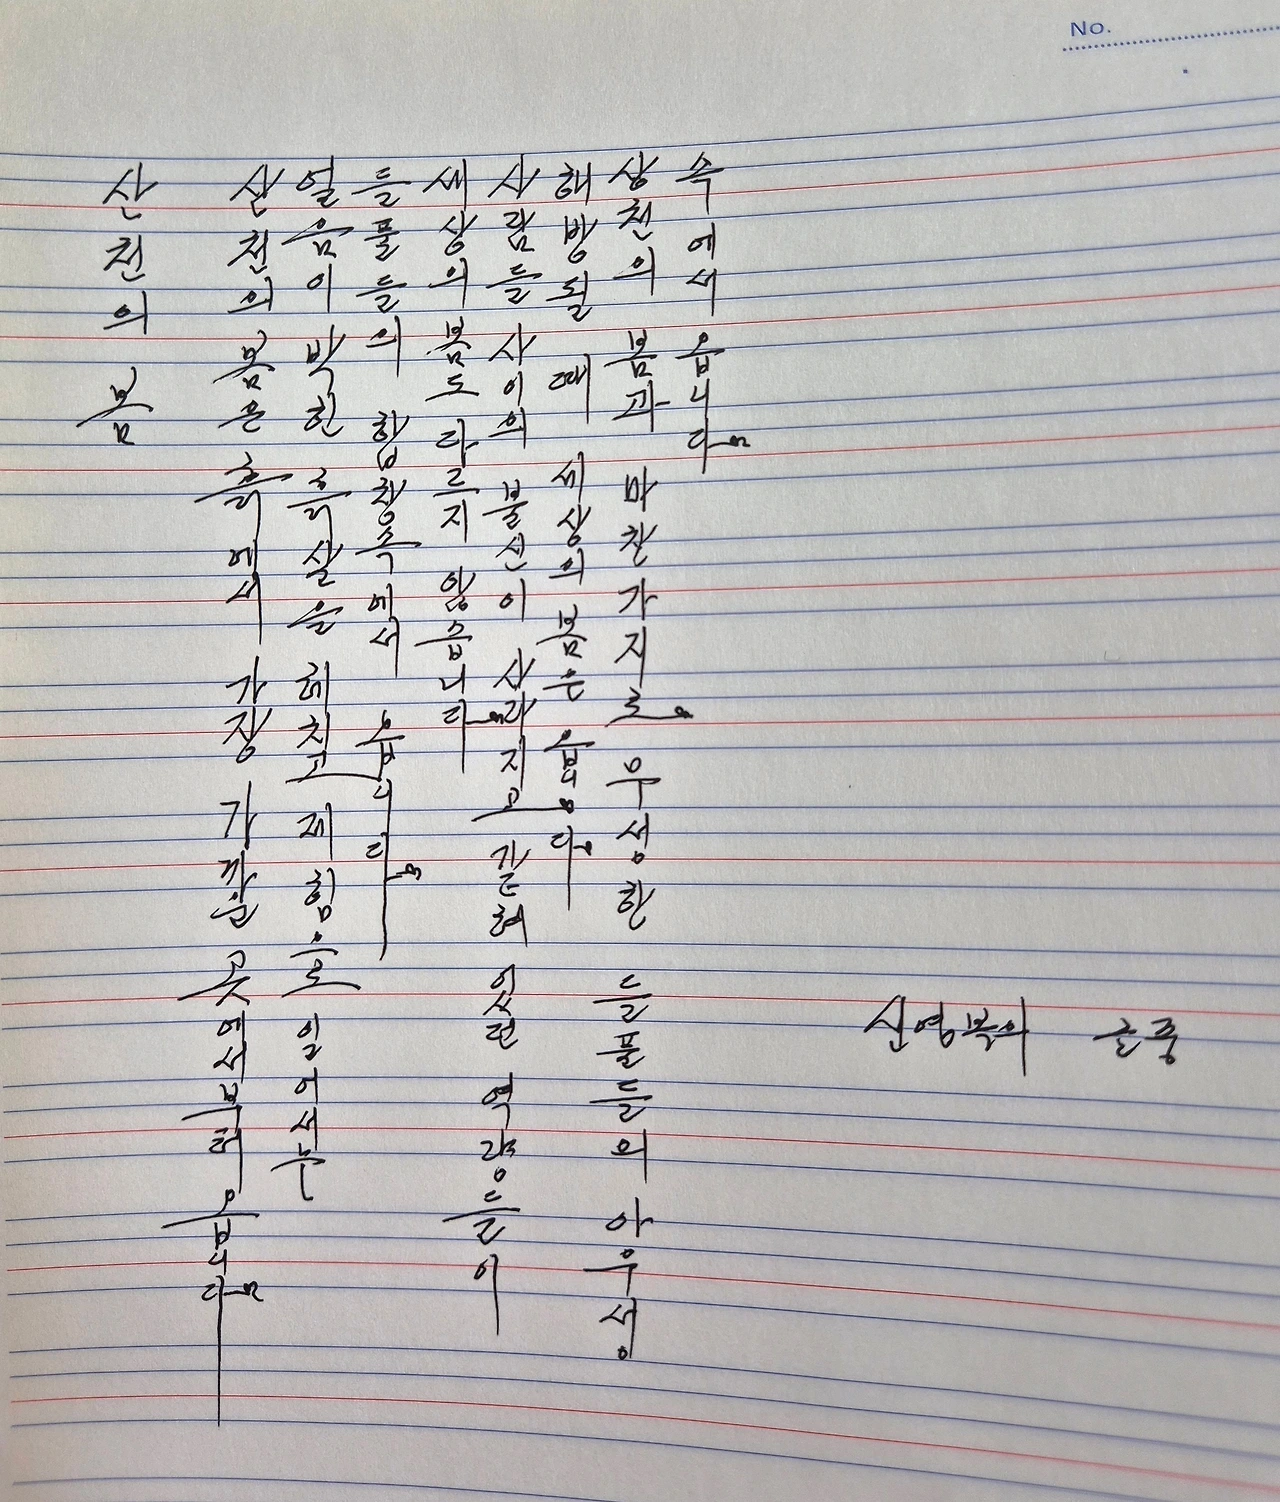 산천의 봄
산천의 봄은 흙에서 가장 가까운 곳에서부터 옵니다
얼음이 박힌 흙살을 헤치고 제힘으로 일어서는
들풀들의 합창 속에서 옵니다
세상의 봄도 다르지 않습니다
사람들 사이의 불신이 사라지고 갇혀 있던 역량들이
해방될 때 세상의 봄은 옵니다
상천의 봄과 마찬가지로 무성한 들풀들의 아우성
속에서 옵니다
신영복의 글 중
No.